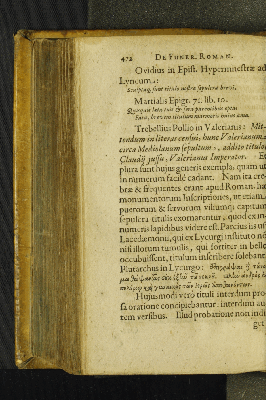 472 DE FUNER. ROMAN.
Ovidius in Epist. Hypermnestræ ad
Lynceum:
Sculptaq; sunt titulo nostra sepulcra brevi.
Martialis Epigr. 71. lib. 10.
Trebellius Pollio in Valerianus: Mit-
tendum in literas censui, hunc Valerianum
circa Mediolanum sepultum, addito titulo
Claudij jussu, Valerianus Imperator. Et
plura sunt hujus generis exempla, quam ut
in numerum facile cadant. Nam ita cre-
bræ & frequentes erant apud Romanos hæ
monumentorum Inscriptiones, ut etiam
puerorum & servorum viliumq; capitum
sepulcra titulis exornarentur, quod ex in-
numeris lapidibus videre est. Parcius is usus
Lacedæmonij, qui ex Lycurgi instituto no-
nisi illorum tumulis, qui fortiter in bello
occubuissent, titulum inscribere solebant
Plutarchus in Lycurgo:
Hujusmodi verò tituli interdum pro-
sa oratione concipiebantur, interdum au-
tem versibus. Illud probatione non indi-
get